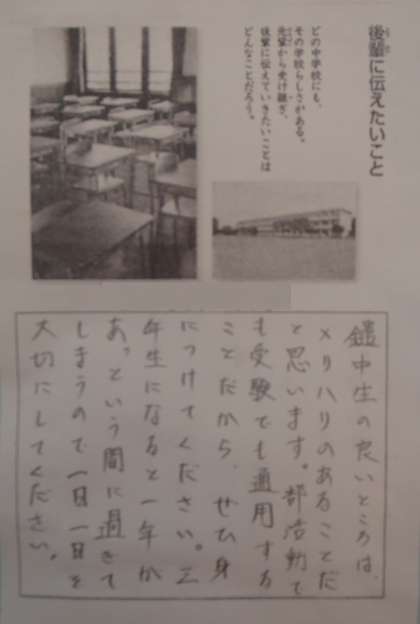 後輩に伝えたいこと
どの中学校にも、
その学校らしさがある。
先輩から受け継ぎ、
後輩に伝えていきたいことは
どんなことだろう。
鐘中生の良いところは、
メリハリのあることだ
と思います。部活動で
も受験でも通用する
ことだから、ぜひ身
につけてください。三
年生になると一年が
あっという間に過ぎて
しまうので一日一日を
大切にしてください。